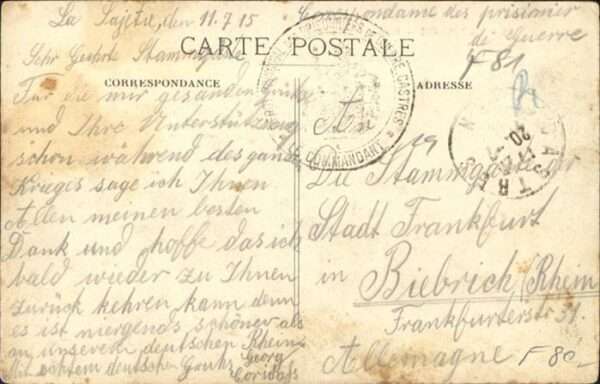 La Sajetu, den 11.7.15
Correspondame des prisionier
de Guerre
F 81
CARTE POSTALE
CORRESPONDANCE
ADRESSE
Sehr Geehrte Stammgäste
Für die mir gesanden Grüße
und Ihre Unterstützung
schon während des ganzen
Krieges sage ich Ihnen
Allen meinen besten
Dank und hoffe das ich
bald wieder zu Ihnen
zurück kehren kann denn
es ist niergends schöner als
an unserem deutschen Rhein
Mit echtem deutschen Gruß
Georg
An
Die Stammgäste der
Stadt Frankfurt
in Biebrich/Rhein
Frankfurterstr 31.
Allemagne
F 80
CASTRES * 
COMMANDANT